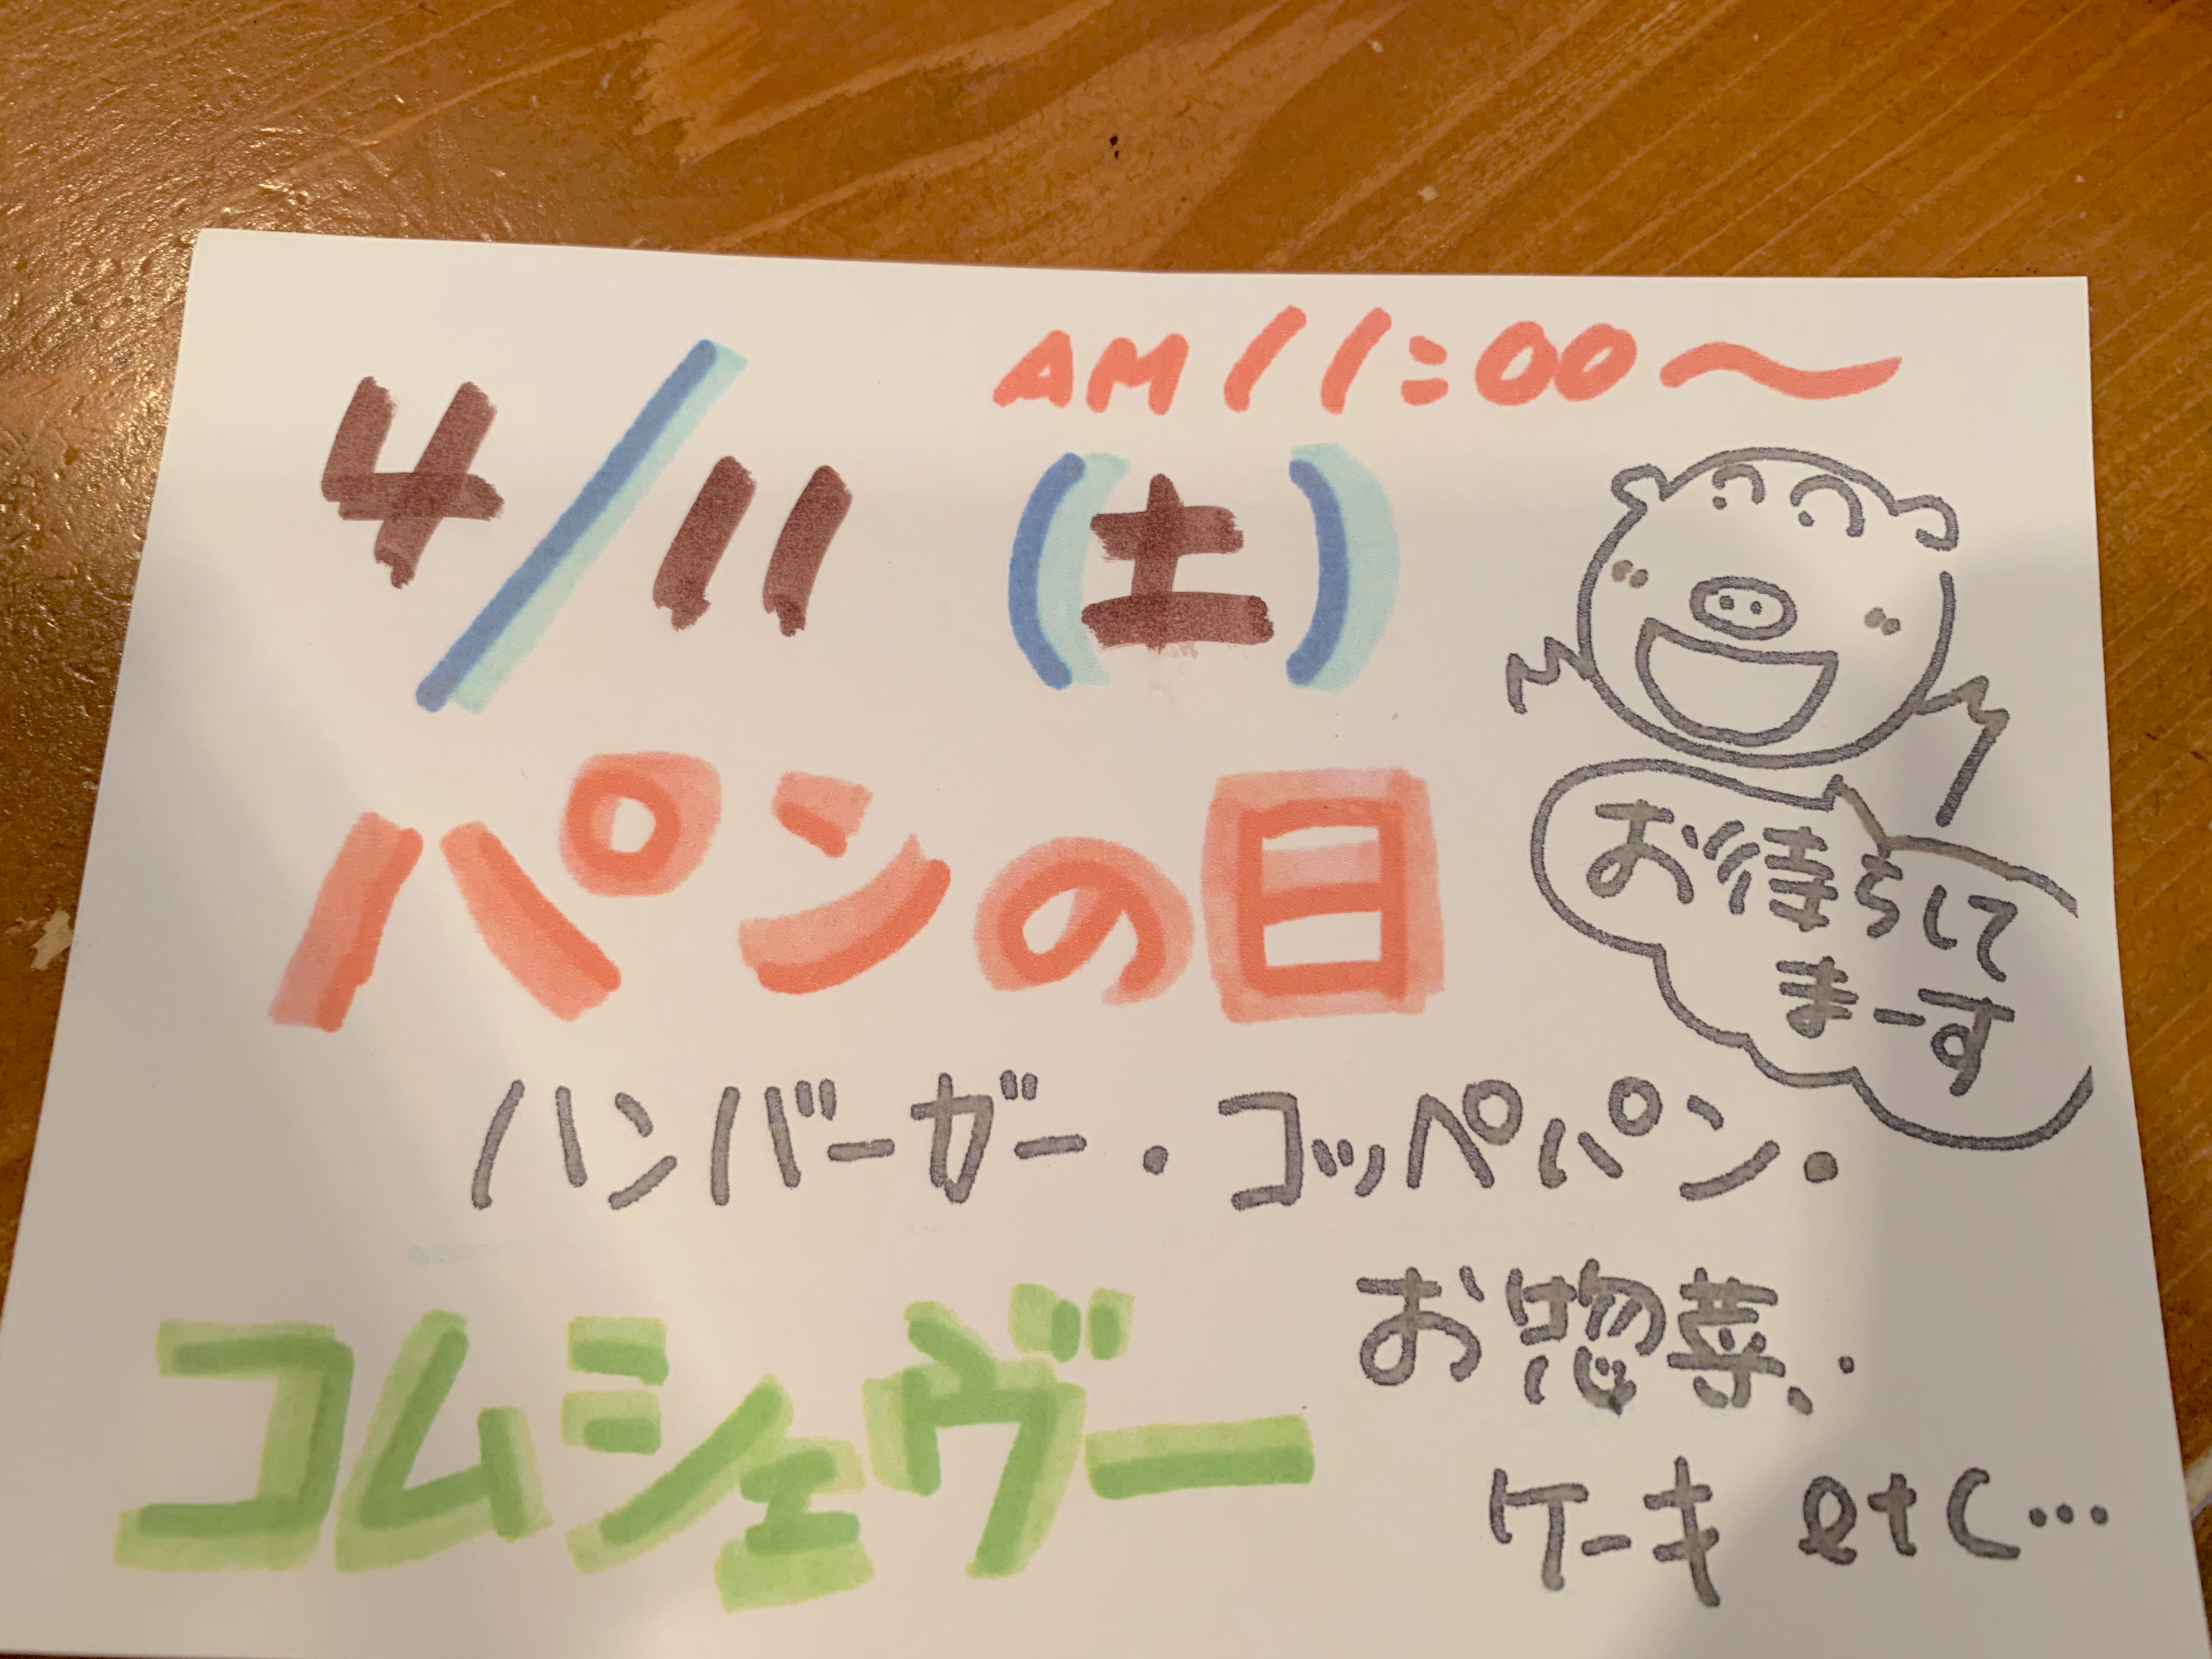 AM 11:00～
4/11 (土)
パンの日
お待ちして
まーす
ハンバーガー・コッペパン・
お惣菜、・
ケーキ etc…
コムシェヴー